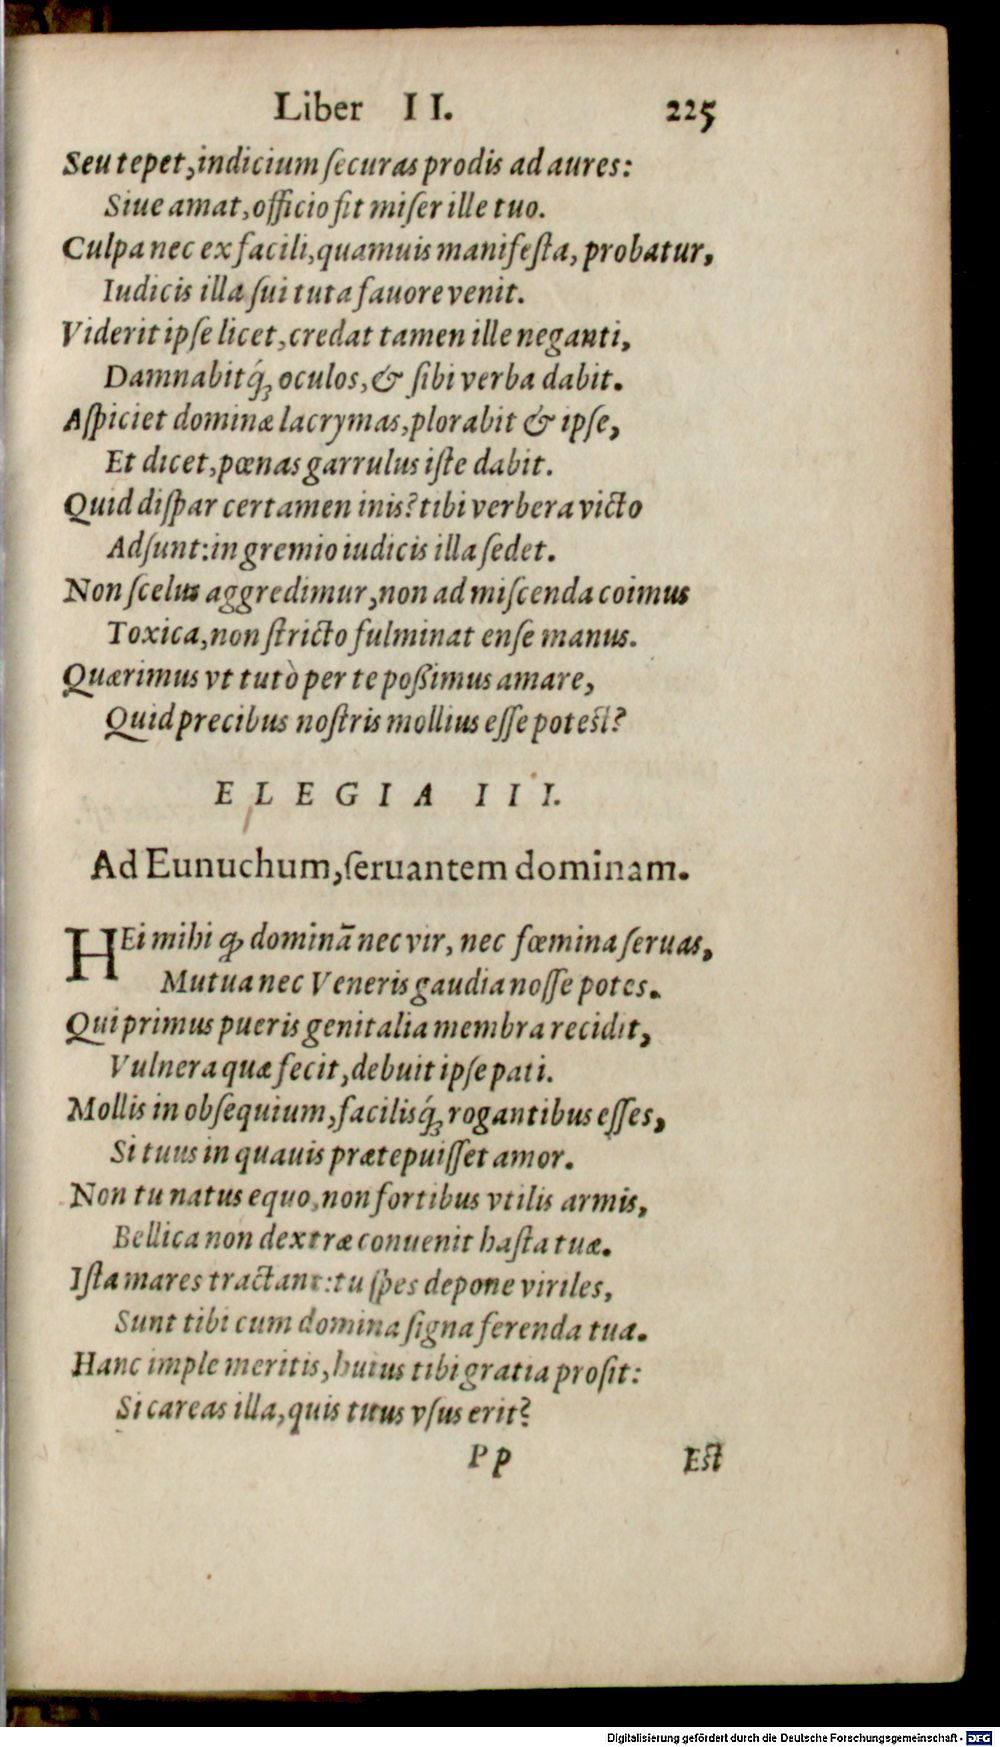 Liber II. 225
Seu tepet, indicium ſecuras prodis ad aures:
Siue amat, officio fit miſer ille tuo.
Culpa nec ex facili, quamuis manifeſta, probatur,
Iudicis illa ſui tuta fauore venit.
Viderit ipſe licet, credat tamen ille neganti,
Damnabitq́ꝫ oculos, & ſibi verba dabit.
Aſpiciet dominæ lacrymas, plorabit & ipſe,
Et dicet, pœnas garrulus iſte dabit.
Quid diſpar certamen inis? tibi verbera victo
Adſunt: in gremio iudicis illa ſedet.
Non ſcelus aggredimur, non ad miſcenda coimus
Toxica, non ſtricto fulminat enſe manus.
Quærimus vt tutò per te poßimus amare,
Quid precibus noſtris mollius eſſe poteſt?
ELEGIA III.
Ad Eunuchum, ſeruantem dominam.
HEi mihi ꝙ dominā nec vir, nec fœmina ſeruas,
Mutua nec Veneris gaudia noſſe potes.
Qui primus pueris genitalia membra recidit,
Vulnera quæ fecit, debuit ipſe pati.
Mollis in obſequium, facilisq́ꝫ rogantibus eſſes,
Si tuus in quauis prætepuiſſet amor.
Non tu natus equo, non fortibus vtilis armis,
Bellica non dextræ conuenit haſta tuæ.
Iſta mares tractant: tu ſpes depone viriles,
Sunt tibi cum domina ſigna ferenda tua.
Hanc imple meritis, huius tibi gratia proſit:
Si careas illa, quis tuus vſus erit?
Pp Eſt
Digitalisierung gefördert durch die Deutsche Forschungsgemeinschaft - DFG